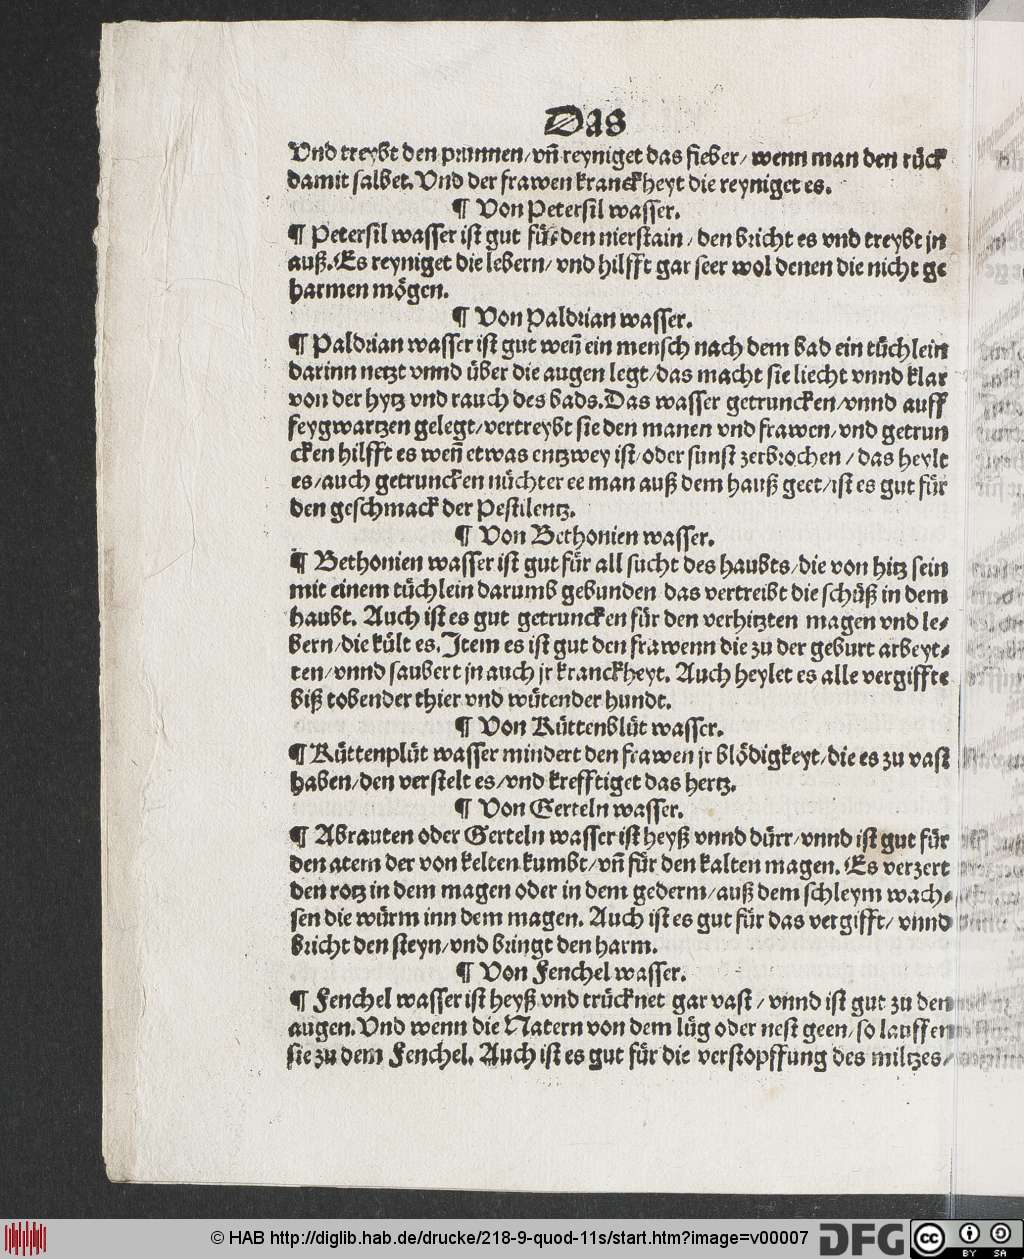 Das
Vnd treybt den prunnen/vñ reyniget das fieber/ wenn man den rück
damit salbet. Vnd der frawen kranckheyt die reyniget es.
¶ Von Petersil wasser.
¶ Petersil wasser ist gut für den nierstain/ den bricht es vnd treybt jn
auß. Es reyniget die lebern/ vnd hilfft gar seer wol denen die nicht ge
harmen mögen.
¶ Von Paldrian wasser.
¶ Paldrian wasser ist gut weñ ein mensch nach dem bad ein tüchlein
darinn netzt vnnd über die augen legt/das macht sie liecht vnnd klar
von der hytz vnd rauch des bads. Das wasser getruncken/vnnd auff
feygwartzen gelegt/vertreybt sie den manen vnd frawen/vnd getrun
cken hilfft es weñ etwas entzwey ist/oder sunst zerbrochen/ das heylt
es/auch getruncken nüchter ee man auß dem hauß geet/ist es gut für
den geschmack der Pestilentz.
¶ Von Bethonien wasser.
¶ Bethonien wasser ist gut für all sucht des haubts/die von hitz sein
mit einem tüchlein darumb gebunden das vertreibt die schüß in dem
haubt. Auch ist es gut getruncken für den verhitzten magen vnd le⸗
bern/die kült es. Item es ist gut den frawenn die zu der geburt arbeyt⸗
ten/vnnd saubert jn auch jr kranckheyt. Auch heylet es alle vergiffte
biß tobender thier vnd wütender hundt.
¶ Von Küttenblüt wasser.
¶ Küttenplüt wasser mindert den frawen jr blödigkeyt/die es zu vast
haben/den verstelt es/vnd krefftiget das hertz.
¶ Von Gerteln wasser.
¶ Abrauten oder Gerteln wasser ist heyß vnnd dürr/vnnd ist gut für
den atem der von kelten kumbt/vñ für den kalten magen. Es verzert
den rotz in dem magen oder in dem gederm/auß dem schleym wach⸗
sen die würm inn dem magen. Auch ist es gut für das vergifft/ vnnd
bricht den steyn/vnd bringt den harm.
¶ Von Fenchel wasser.
¶ Fenchel wasser ist heyß vnd trücknet gar vast/ vnnd ist gut zu den
augen. Vnd wenn die Natern von dem lüg oder nest geen/so lauffen
sie zu dem Fenchel. Auch ist es gut für die verstopffung des miltzes/
© HAB http://diglib.hab.de/drucke/218-9-quod-11s/start.htm?image=v00007
DFG
cc BY SA